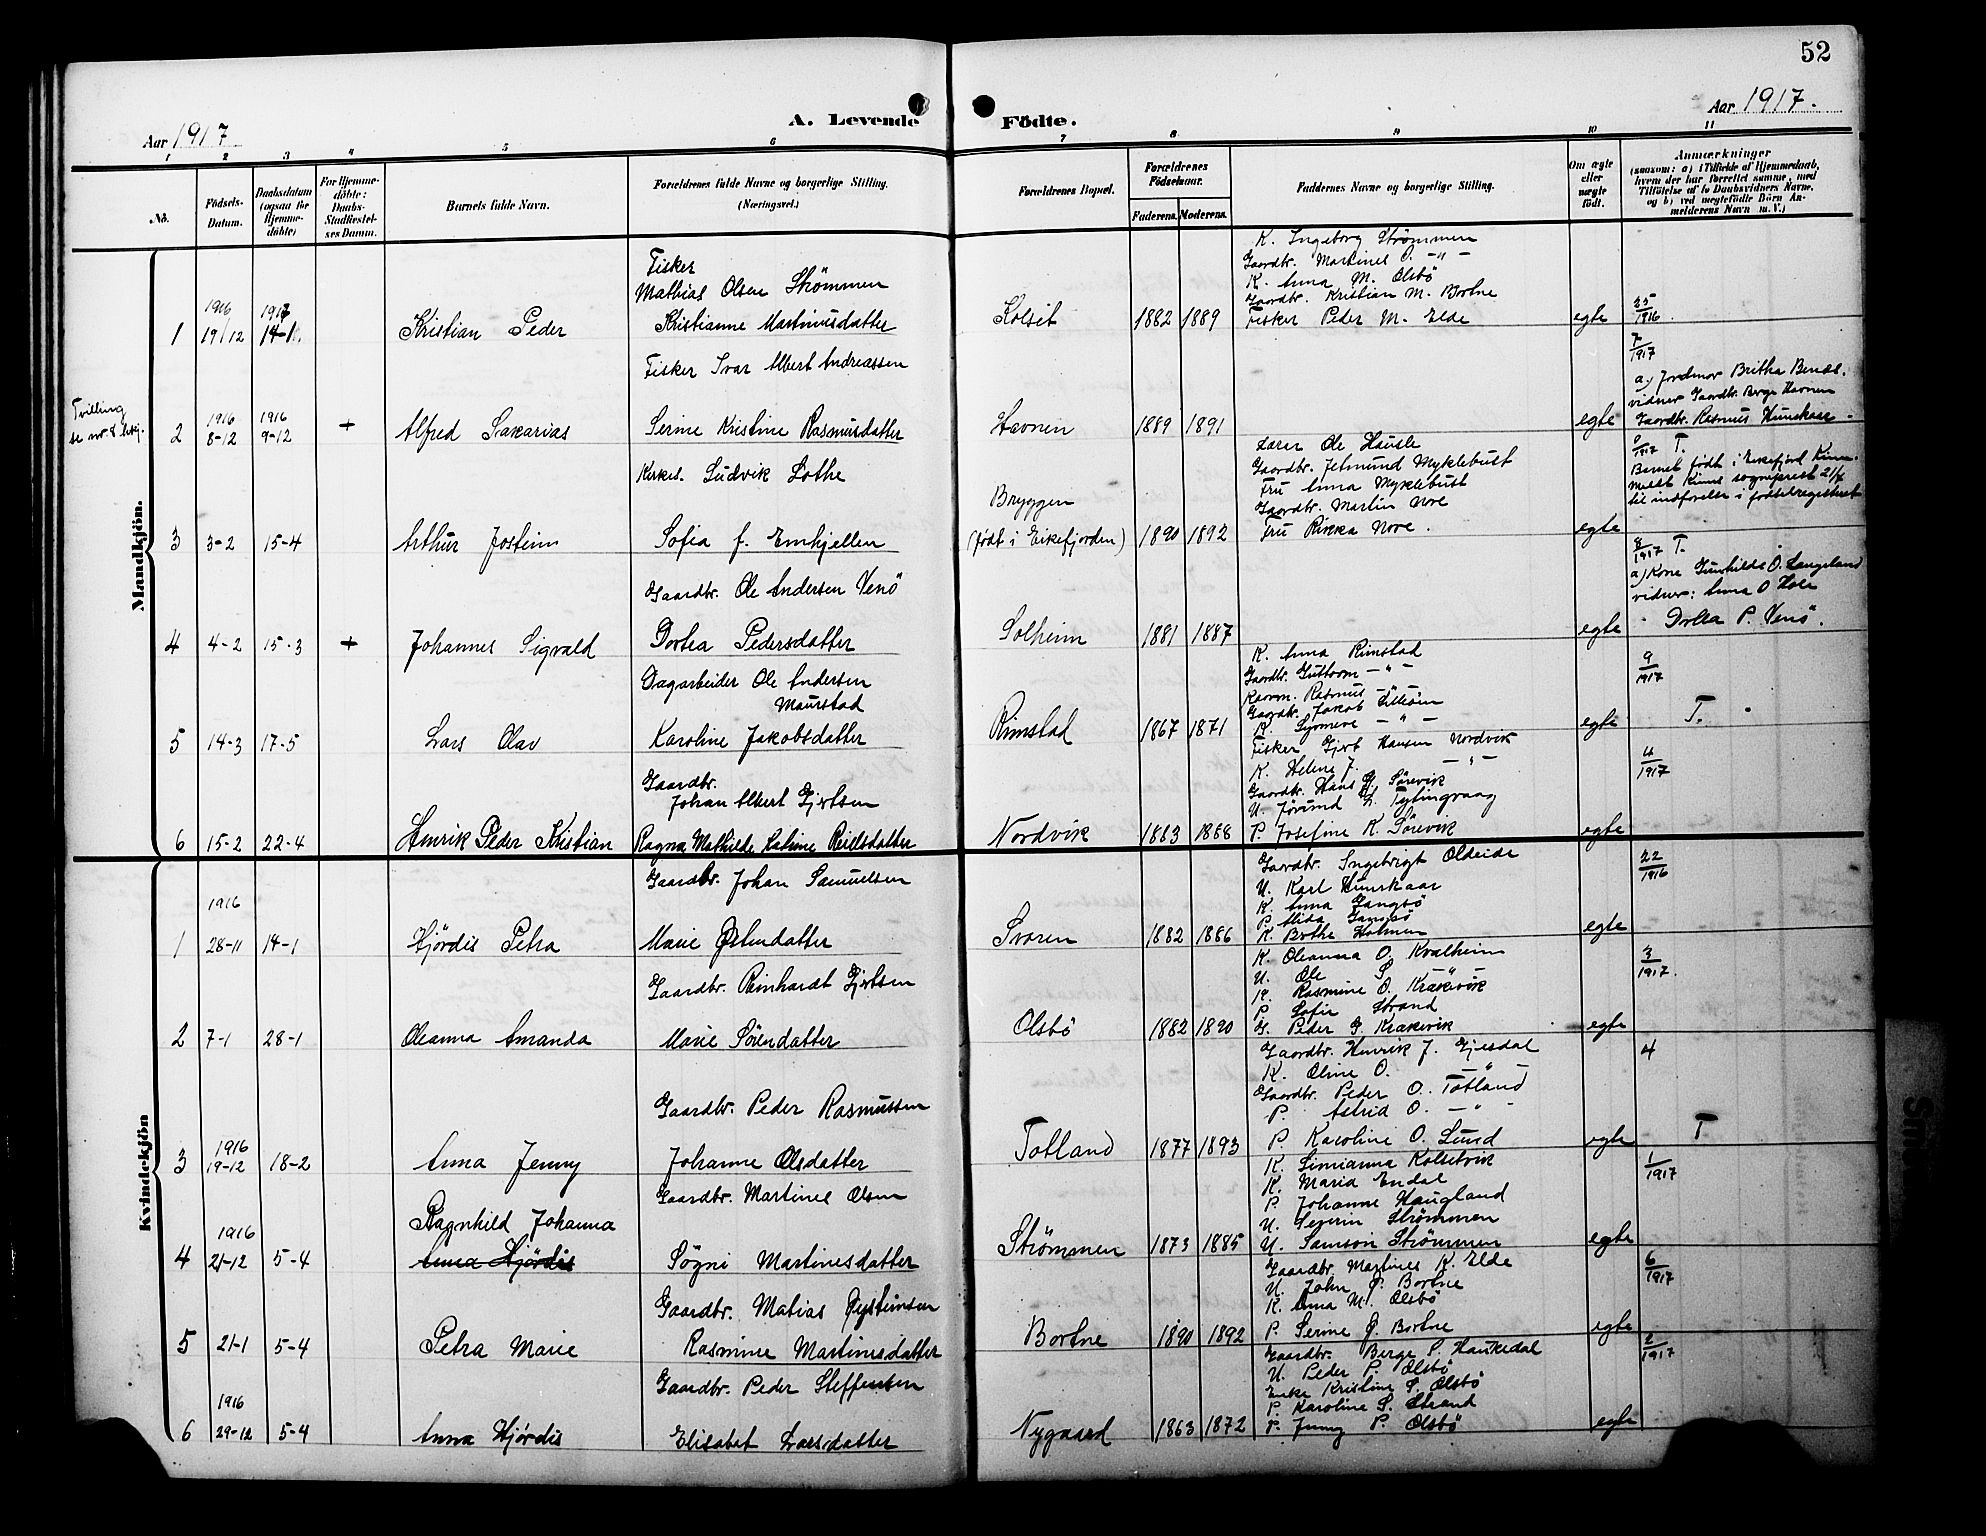 52
Aar 1917
A. Levende Födte.
Aar 1917.
1 2 3 4 5 6 7 8 9 10 11
No.
Födsels-Datum.
Daabsdatum (ogsaa for Hjemme-döbte)
For Hjemme-döbte: Daabs-Stadfæstel-ses Datum.
Barnets fulde Navn.
Forældrenes fulde Navne og borgerlige Stilling. (Næringsvei.)
Forældrenes Bopæl.
Forældrenes Födselsaar.
Faderens. Moderens.
Faddernes Navne og borgerlige Stilling.
Om ægte eller uægte födt.
Anmærkninger
(saasom: a) i Tilfælde af Hjemmedaab, hvem der har forrettet samme, med Tilföielse af to Daabsvidners Navne, og b) ved uægtefödte Börn An-melderens Navn m. V.)
Mandkjön.
1 1916 19/12 1917 14-1. Kristian Peder
Fisker
Mathias Olsen Strömmen
Kristianne Martinusdatter
Kolset 1882 1889
K. Ingeborg Strömmen
Gaardbr. Martines O. -"-
K. Anna M. Olsbö
Gaardbr. Kristian M. Bortne
Fisker Peder M. Elde
egte
25/1916
Tvilling
se nr. 8 kvkj.
2 1916 8-12 1916 9-12 + Alfred Sakarias
Fisker Ivar Albert Andreassen
Serine Kristine Rasmusdatter
Havnen 1889 1891
egte
7/1917
a) Jordmor Britha Bends.
vidner Gaardbr. Berge Havnen
Gaardbr. Rasmus Hunskaar -
3 3-2 15-4 Arthur Jostein
Kirkes. Ludvik Lothe
Sofia f. Emhjellen
Bryggen
(født i Eikefjorden) 1890 1892
Lærer Ole Hausle
Gaardbr. Jetmund Myklebust
Fru Anna Myklebust
Gaardbr. Martin Nore
Fru Rikka Nore.
egte
/1917 T.
Barnet født i Eikefjord Kinn.
Meldt Kinns sogneprest 21/4
til indførelse i fødselregisteret
4 4-2 15-3 + Johannes Sigvald
Gaardbr. Ole Andersen Venö
Dortea Pedersdatter
Solheim 1881 1887
egte
8/1917 T.
a) Kone Gunhilda O. Langeland
vidner: Anna O Hole
" Dortea P. Venö.
5 14-3 17-5 Lars Olav
Dagarbeider Ole Andersen
Maurstad
Karoline Jakobsdatter
Rimstad 1867 1871
K. Anna Rimstad
Gaardbr. Guttorm -"-
Rasmus -"-
Gaardbr. Jakob Lilleöen
K. Synneve -"-
egte
9/1917
T.
6 15-2 22-4 Henrik Peder Kristian
Gaardbr.
Johan Albert Gjertsen
Ragna Mathilde Katrine Reielsdatter
Nordvik 1883 1888
Fisker Gjert Hansen Nordvik
K. Helene J. -"-
Gaardbr. Hans G. Sörevik
U. Jörund Tytingvaag
P. Josefine K. Sörevik
egte
4/1917
Kvindekjön
1 1916 28-11 14-1 Hjördis Petra
Gaardbr. Johan Samuelsen
Marie Östendatter
Svoren 1882 1886
Gaardbr. Ingebrigt Oldeide
U. Karl Hunskaar
K. Anna Gangsö
P. Alida Gangsö
K. Brithe Holmen
egte
22/1916
2 7-1 28-1 Oleanna Amanda
Gaardbr. Reinhardt Gjertsen
Marie Sörendatter
Olsbö 1882 1890
K. Oleanna O. Kvalheim
U. Ole S. "
K. Rasmine O. Kråkevik
P. Sofie Strand
G. Peder G. Krakevik
egte
3/1917.
3 1916 19-12 18-2 Anna Jenny
Gaardbr. Peder Rasmussen
Johanne Olsdatter
Totland 1877 1893
Gaardbr. Henrik J. Gjesdal
K. Oline O. "
Gaardbr. Peder O. Totland
P. Astrid O. -"-
P. Karoline O. Lund
egte
4
T
4 1916 21-12 5-4 Ragnhild Johanna
Anna Hjördis
Gaardbr. Martines Olsen
Sögni Martinesdatter
Strömmen 1873 1885
K. Simianna Kolsetvik
K. Maria Endal
P. Johanne Haugland
U. Severin Strömmen
U. Samson Strömmen
egte
1/1917
5 21-1 5-4 Petra Marie
Gaardbr. Matias Öysteinsen
Rasmine Martinesdatter
Bortne 1890 1892
Gaardbr Martines K. Elde
U. John P. Bortne
K. Anna M. Olsbö
P. Serine Ø. Bortne
egte
6/1917
6 1916 29-12 5-4 Anna Hjördis
Gaardbr. Peder Steffensen
Elisabet Larsdatter
Nygaard 1863 1872
Gaardbr. Berge P. Haukedal
U. Peder P. Olsbö
Enke Kristine S. Olsbö
P. Karoline S. Strand
P. Jenny P. Olsbö
egte
2/1917